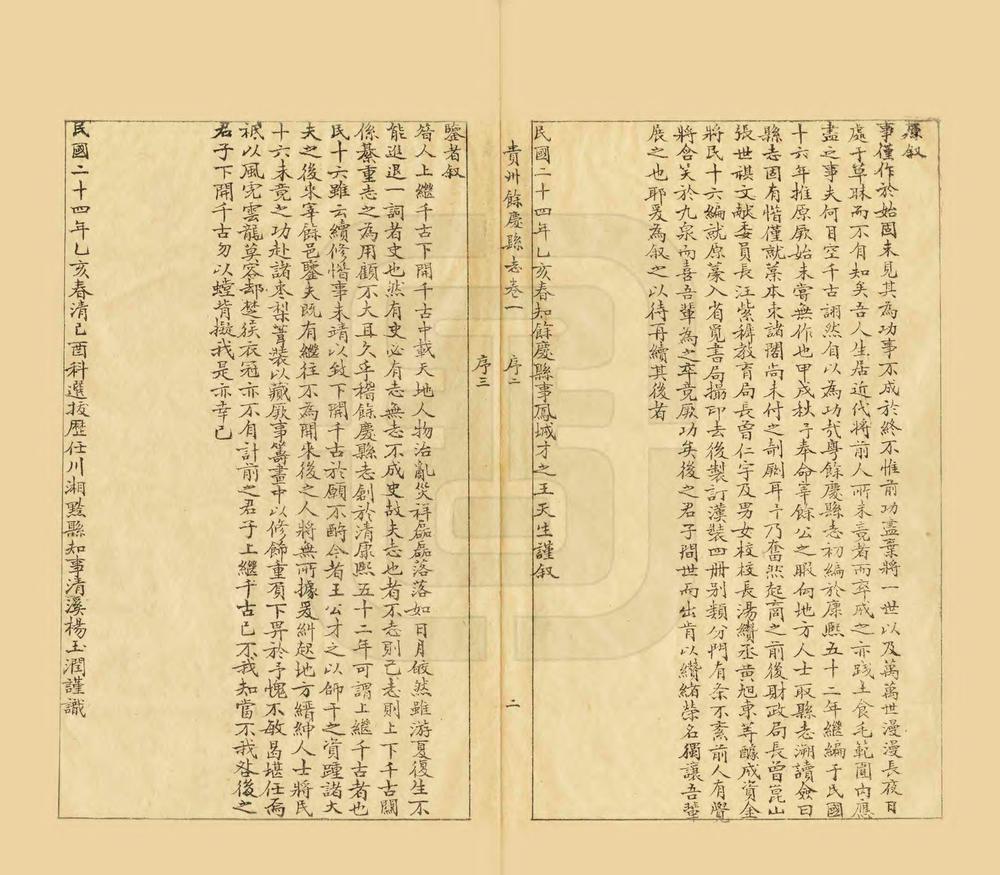 原叙
事僅作於始固未見其為功事不成於終不惟前功盡棄將一世以及萬萬世漫漫長夜日
處于草昧而不有知矣吾人生居近代將前人所未竟者而卒成之亦踐土食毛範圍內應
盡之事夫何目空千古詡然自以為功哉粵餘慶縣志初編於康熙五十二年繼編于民國
十六年推原厥始未嘗無作也甲戌秋予奉命宰餘公之暇向地方人士取縣志溯讀僉曰
縣志固有惜僅就藁本未諸閣尚未付之剞劂耳予乃奮然起商之前後財政局長曾崑山
張世祺文獻委員長汪紫裤教育局長曾仁宇及男女校校長湯纘丞黃旭東等醵成資金
將民十六編就原藁入省覓書局撮印去後製訂漢裝四冊別類分門有条不紊前人有覺
將含笑於九泉而喜吾輩為之卒竟厥功矣後之君子間世而出肯以纘緒榮名獨讓吾輩
展之也耶爰為叙之以待再續其後者
民國二十四年乙亥春知餘慶縣事鳳城才之王天生謹叙
貴州餘慶縣志卷一 序二 二
序三
鑒者叙
昝人上繼千古下開千古中載天地人物治亂災祥磊磊落落如日月皎然雖游夏復生不
能進退一詞者史也然有史必有志無志不成史故夫志也者不志則已志則上下千古關
係綦重志之為用顧不大且久乎稽餘慶縣志創於清康熙五十二年可謂上繼千古者也
民十六雖云續修惜事未靖以致下開千古於願不酧今者王公才之以師干之資踵諸大
夫之後來宰餘邑鑒夫既有繼往不為開來後之人將無所據爰糾起地方縉紳人士將民
十六未竟之功赴諸枣梨葺裝以藏厥事籌畫中以修飾重負下畀於予愧不敏曷堪任焉
祇以風宪雲龍莫容却楚侯衣冠亦不有計前之君子上繼千古已不我知當不我咎後之
君子下開千古勿以螳背擬我是亦幸已
民國二十四年乙亥春清己酉科選抜歷任川湘黔縣知事清溪楊玉潤謹識